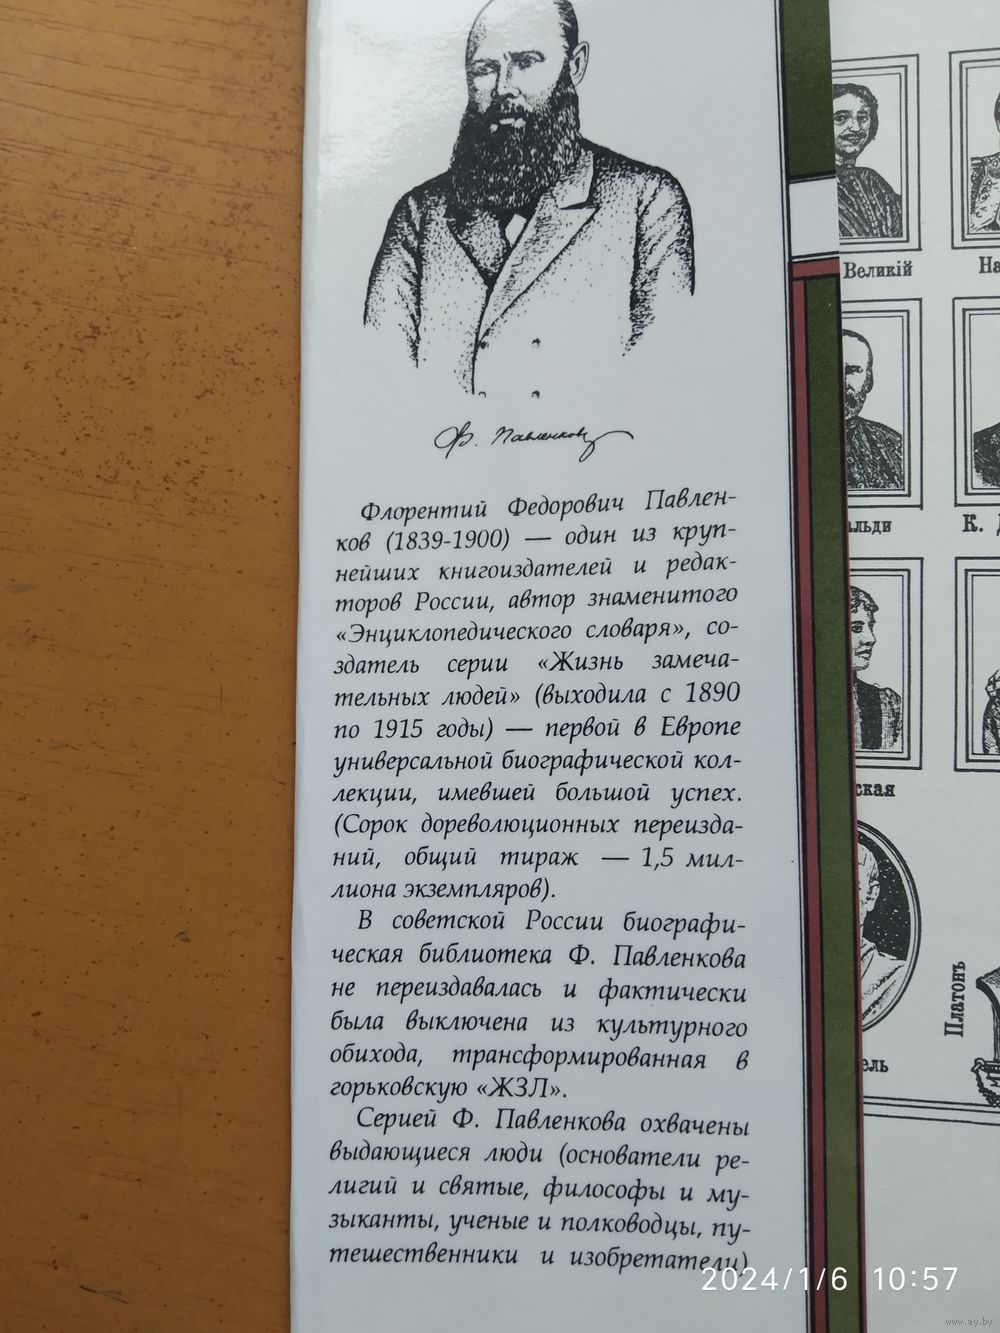 Ф. Павленков
Флорентий Федорович Павлен-
ков (1839-1900) — один из круп-
нейших книгоиздателей и редак-
торов России, автор знаменитого
«Энциклопедического словаря», со-
здатель серии «Жизнь замеча-
тельных людей» (выходила с 1890
по 1915 годы) — первой в Европе
универсальной биографической кол-
лекции, имевшей большой успех.
(Сорок дореволюционных переизда-
ний, общий тираж — 1,5 мил-
лиона экземпляров).
В советской России биографи-
ческая библиотека Ф. Павленкова
не переиздавалась и фактически
была выключена из культурного
обихода, трансформированная в
горьковскую «ЖЗЛ».
Серией Ф. Павленкова охвачены
выдающиеся люди (основатели ре-
лигий и святые, философы и му-
зыканты, ученые и полководцы, пу-
тешественники и изобретатели)
Великій
На
альди
К. Д
ская
Платонъ
ель
2024/1/6 10:57
www.ay.by